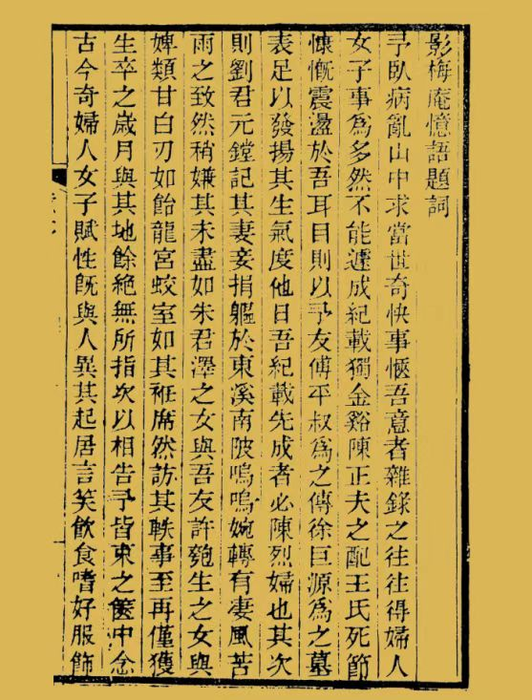 影梅庵憶語題詞
予臥病亂山中求當世奇快事愜吾意者雜錄之往往得婦人
女子事爲多然不能遽成紀載獨金谿陳正夫之配王氏死節
慷慨震盪於吾耳目則以予友傅平叔爲之傳徐巨源爲之墓
表足以發揚其生氣度他日吾紀載先成者必陳烈婦也其次
則劉君元鏜記其妻妾捐軀於東溪南陂嗚嗚婉轉有凄風苦
雨之致然稍嫌其未盡如朱君澤之女與吾友許匏生之女與
婢類甘白刃如飴龍宮蛟室如其袵席然訪其軼事至再僅獲
生卒之歲月與其地餘絶無所指次以相告予皆束之篋中念
古今奇婦人女子賦性旣與人異其起居言笑飮食嗜好服飾